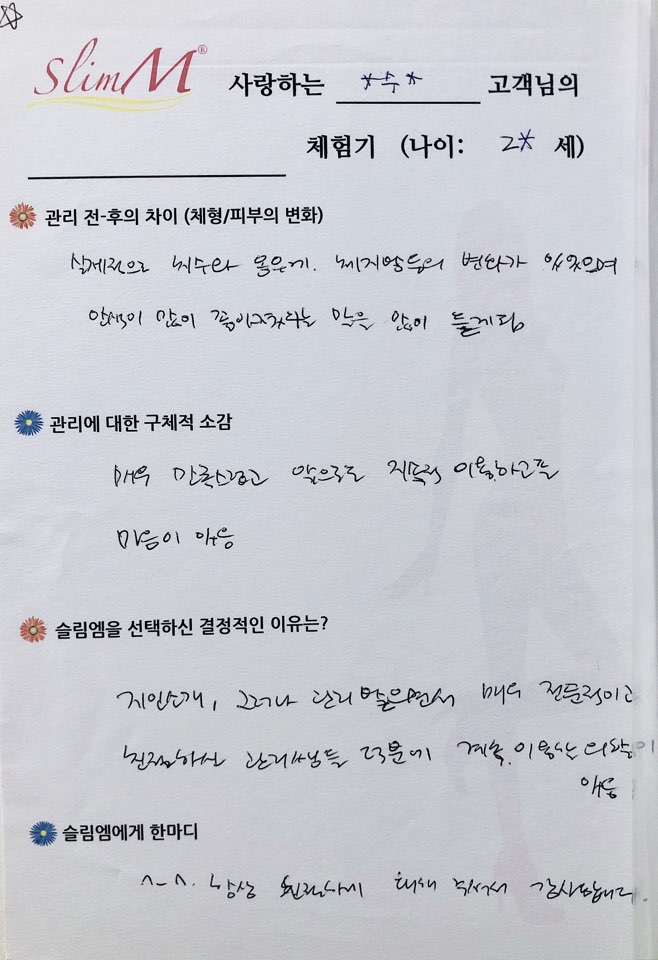 slimM®
사랑하는 *수* 고객님의
체험기 (나이: 2* 세)
관리 전-후의 차이 (체형/피부의 변화)
실제적으로 치수와 몸무게. 체지방등의 변화가 있었으며
인상이 많이 좋아졌다는 말을 많이 듣게됨
관리에 대한 구체적 소감
매우 만족스럽고 앞으로도 지속적 이용하고픈
마음이 있음
슬림엠을 선택하신 결정적인 이유는?
지인소개, 그러나 관리 받으면서 매우 전문적이고
친절하신 관리쌤들 덕분에 계속 이용할 의향이
있음
슬림엠에게 한마디
^_^. 항상 친절하게 대해 주셔서 감사합니다.